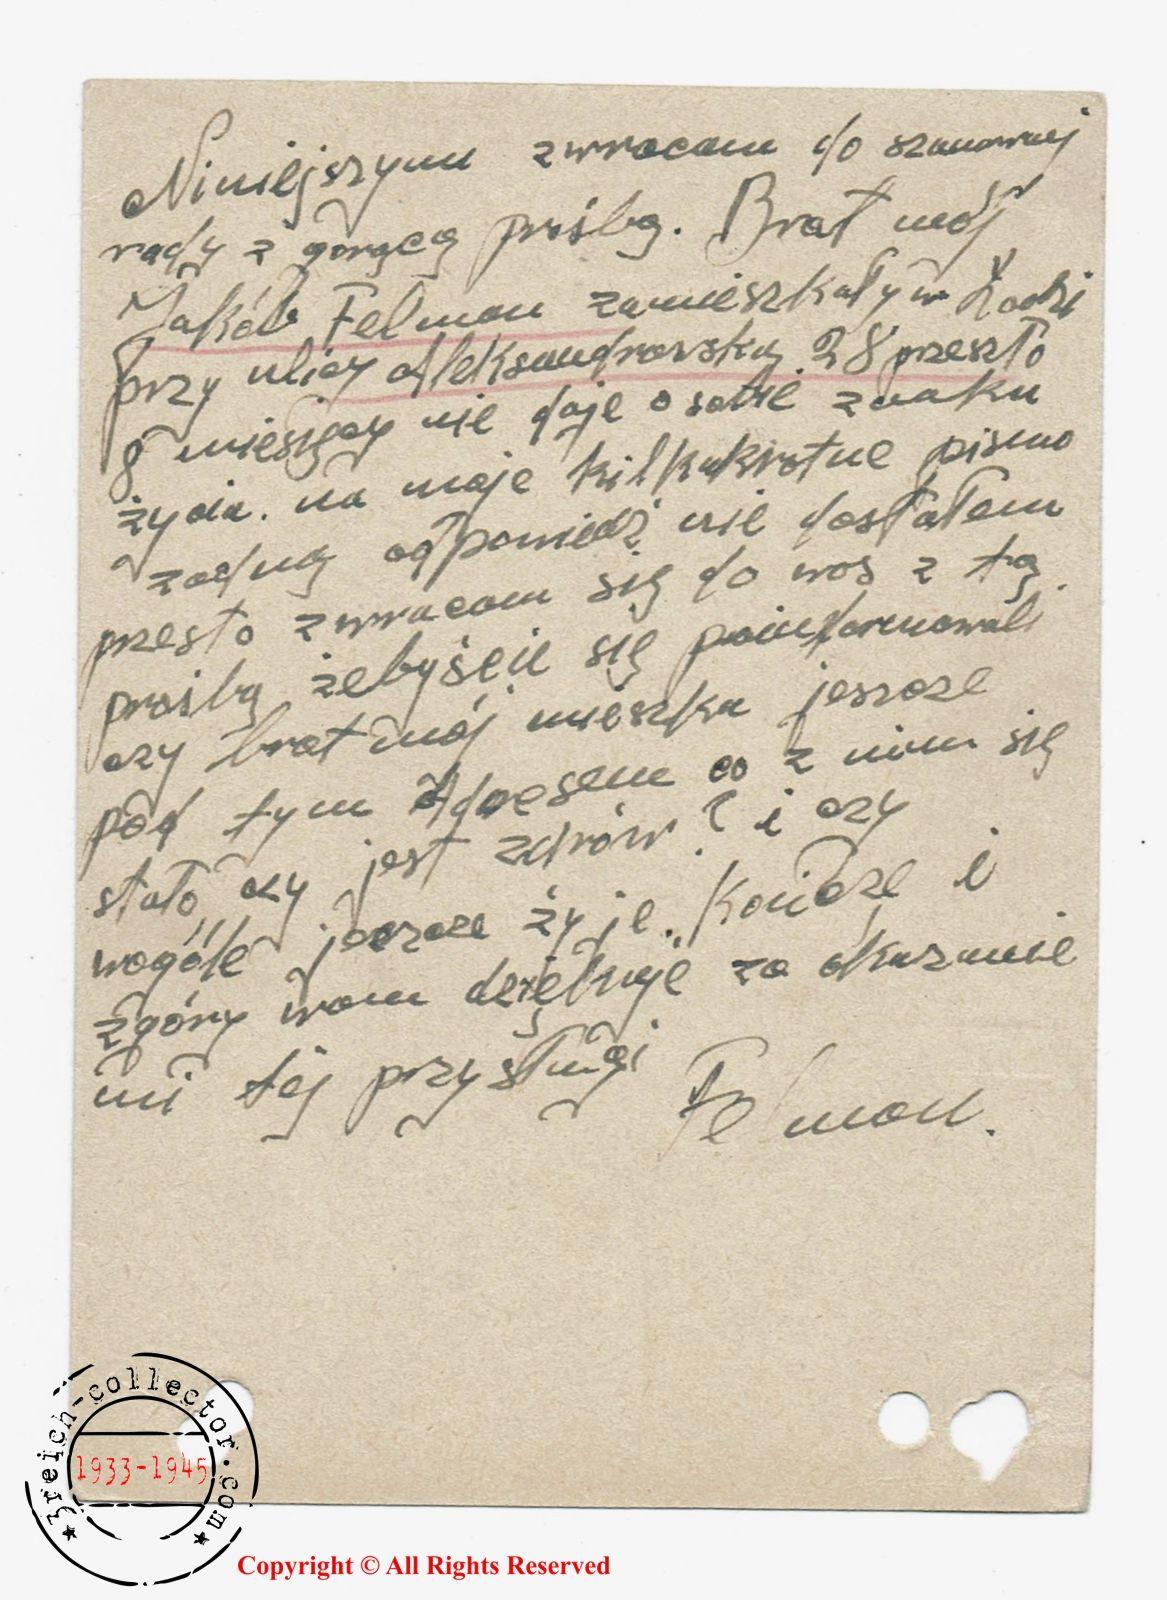 Niniejszym zwracam do szanownej
rady z gorącą prośbą. Brat mój
Jakób Felman zamieszkały w Łodzi
przy ulicy Aleksandrowską 28 przeszło
8 miesięcy nie daje o sobie znaku
życia. na moje kilkukrotne pismo
żadną odpowiedź nie dostałem
przesto zwracam się do was z tą
prośbą żebyście się poinformowali
czy brat mój mieszka jeszcze
pod tym Adresem co z nim się
stało, czy jest zdrów? i czy
wogóle jeszcze żyje. Kończe i
zgóry wam dziękuje za okazanie
mi tej przysługi
Felman.
3reich-collector.com
1933-1945
Copyright © All Rights Reserved